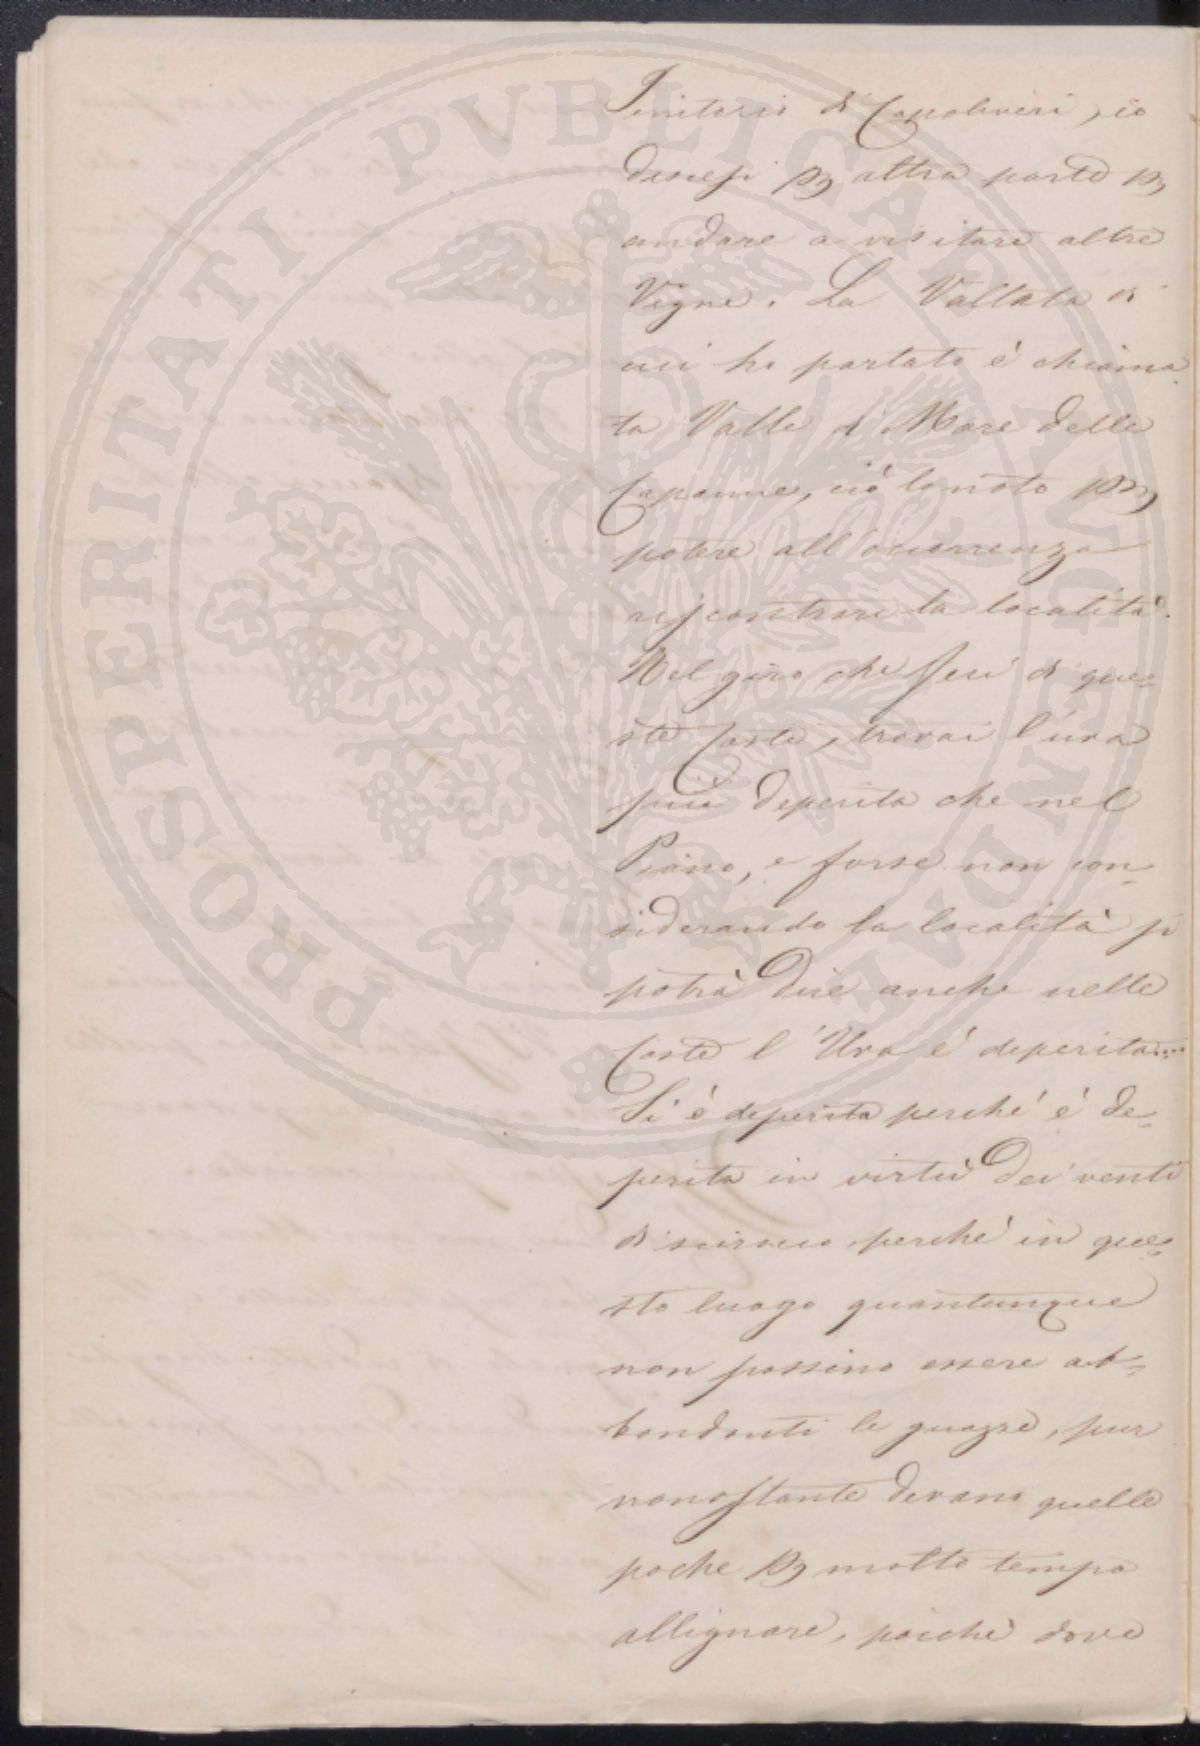 PROSPERITATI PVBLICAE AVGENDAE
Territorio di Capoliveri, io
discesi per altra parte per
andare a visitare altre
Vigne. La Vallata di
cui ho parlato è chiama
ta Valle di Mare delle
Capanne, ciò lo noto per
potere all'occorrenza
riscontrare la località.
Nel giro che feci di que=
ste Coste, trovai l'uva
più deperita che nel
Piano, e forse non con=
siderando la località si
potrà dire anche nelle
Coste l'Uva è deperita....
Si è deperita perché è de=
perita in virtù dei venti
di scirocco, perché in que=
sto luogo quantunque
non possino essere ab=
bondanti le guazze, pur
nonostante devano quelle
poche per molto tempo
allignare, poiché dove